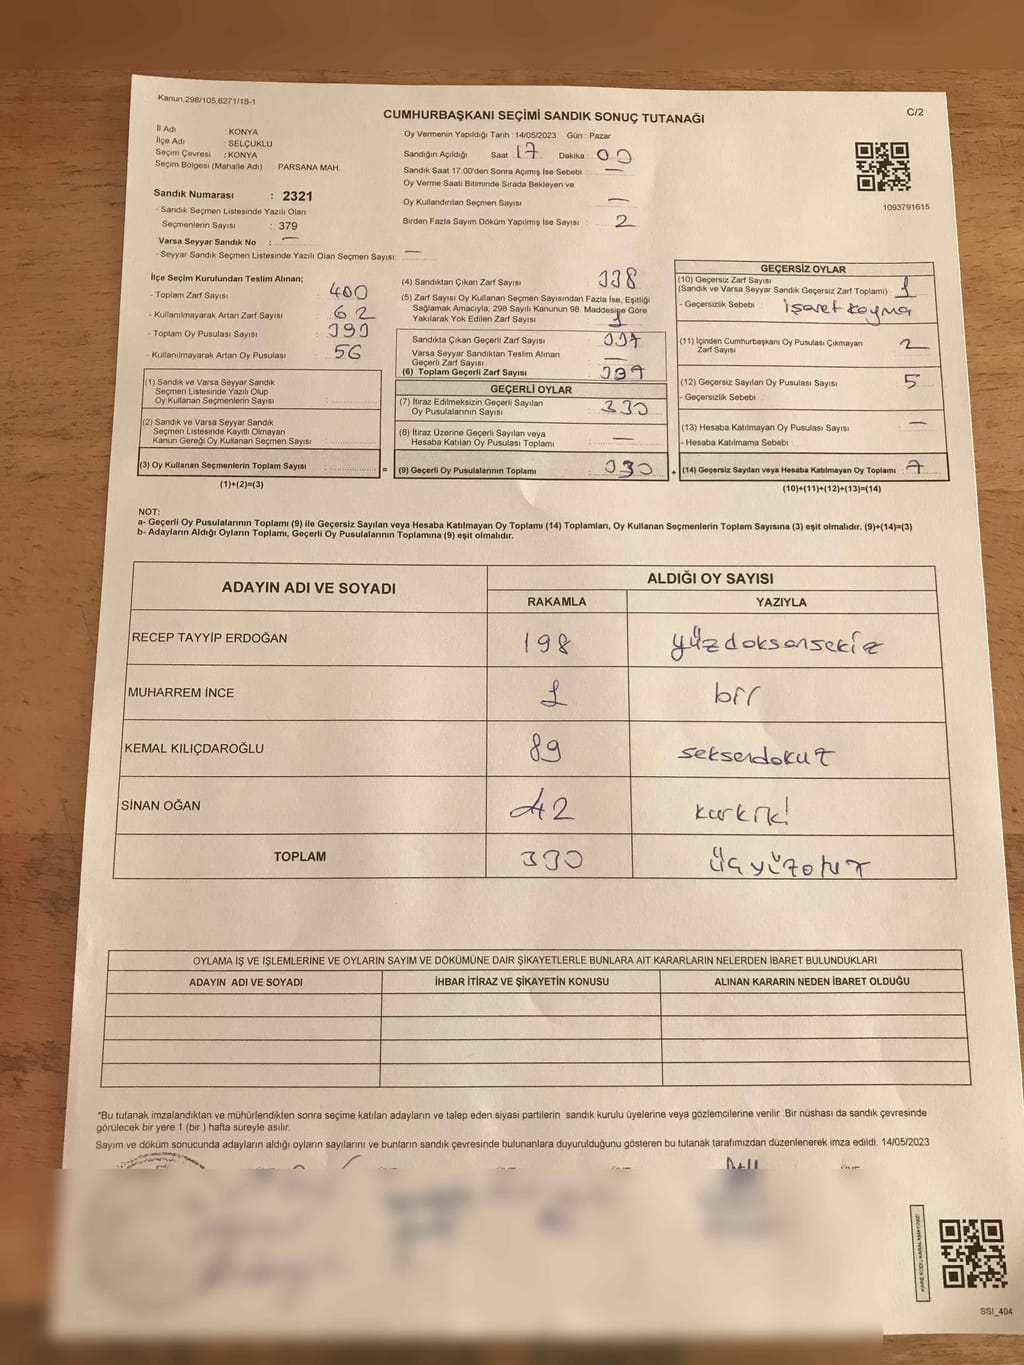 Kanun,298/105,6271/18-1
C/2
CUMHURBAŞKANI SEÇİMİ SANDIK SONUÇ TUTANAĞI
İl Adı : KONYA
İlçe Adı : SELÇUKLU
Seçim Çevresi : KONYA
Seçim Bölgesi (Mahalle Adı) : PARSANA MAH.
Sandık Numarası : 2321
- Sandık Seçmen Listesinde Yazılı Olan
Seçmenlerin Sayısı : 379
Varsa Seyyar Sandık No : —
- Seyyar Sandık Seçmen Listesinde Yazılı Olan Seçmen Sayısı: —
Oy Vermenin Yapıldığı Tarih : 14/05/2023 Gün : Pazar
Sandığın Açıldığı Saat 17 Dakika 00
Sandık Saat 17:00'den Sonra Açımış İse Sebebi : —
Oy Verme Saati Bitiminde Sırada Bekleyen ve
Oy Kullandırılan Seçmen Sayısı : —
Birden Fazla Sayım Döküm Yapılmış İse Sayısı : 2
1093791615
İlçe Seçim Kurulundan Teslim Alınan;
- Toplam Zarf Sayısı : 400
- Kullanılmayarak Artan Zarf Sayısı : 62
- Toplam Oy Pusulası Sayısı : 393
- Kullanılmayarak Artan Oy Pusulası : 56
(1) Sandık ve Varsa Seyyar Sandık
Seçmen Listesinde Yazılı Olup
Oy Kullanan Seçmenlerin Sayısı :
(2) Sandık ve Varsa Seyyar Sandık
Seçmen Listesinde Kayıtlı Olmayan
Kanun Gereği Oy Kullanan Seçmen Sayısı :
(3) Oy Kullanan Seçmenlerin Toplam Sayısı :
(1)+(2)=(3)
(4) Sandıktan Çıkan Zarf Sayısı : 338
(5) Zarf Sayısı Oy Kullanan Seçmen Sayısından Fazla İse, Eşitliği
Sağlamak Amacıyla; 298 Sayılı Kanunun 98. Maddesine Göre
Yakılarak Yok Edilen Zarf Sayısı : 1
Sandıkta Çıkan Geçerli Zarf Sayısı : 337
Varsa Seyyar Sandıktan Teslim Alınan
Geçerli Zarf Sayısı : —
(6) Toplam Geçerli Zarf Sayısı : 337
GEÇERLİ OYLAR
(7) İtiraz Edilmeksizin Geçerli Sayılan
Oy Pusulalarının Sayısı : 330
(8) İtiraz Üzerine Geçerli Sayılan veya
Hesaba Katılan Oy Pusulası Toplamı : —
= (9) Geçerli Oy Pusulalarının Toplamı : 330 +
GEÇERSİZ OYLAR
(10) Geçersiz Zarf Sayısı
(Sandık ve Varsa Seyyar Sandık Geçersiz Zarf Toplamı) : 1
- Geçersizlik Sebebi : işaret koyma
(11) İçinden Cumhurbaşkanı Oy Pusulası Çıkmayan
Zarf Sayısı : 2
(12) Geçersiz Sayılan Oy Pusulası Sayısı : 5
- Geçersizlik Sebebi :
(13) Hesaba Katılmayan Oy Pusulası Sayısı : —
- Hesaba Katılmama Sebebi :
(14) Geçersiz Sayılan veya Hesaba Katılmayan Oy Toplamı : 7
(10)+(11)+(12)+(13)=(14)
NOT:
a- Geçerli Oy Pusulalarının Toplamı (9) ile Geçersiz Sayılan veya Hesaba Katılmayan Oy Toplamı (14) Toplamları, Oy Kullanan Seçmenlerin Toplam Sayısına (3) eşit olmalıdır. (9)+(14)=(3)
b- Adayların Aldığı Oyların Toplamı, Geçerli Oy Pusulalarının Toplamına (9) eşit olmalıdır.
ADAYIN ADI VE SOYADI
ALDIĞI OY SAYISI
RAKAMLA YAZIYLA
RECEP TAYYİP ERDOĞAN 198 yüzdoksansekiz
MUHARREM İNCE 1 bir
KEMAL KILIÇDAROĞLU 89 seksendokuz
SİNAN OĞAN 42 kırkiki
TOPLAM 330 üçyüzotuz
OYLAMA İŞ VE İŞLEMLERİNE VE OYLARIN SAYIM VE DÖKÜMÜNE DAİR ŞİKAYETLERLE BUNLARA AİT KARARLARIN NELERDEN İBARET BULUNDUKLARI
ADAYIN ADI VE SOYADI İHBAR İTİRAZ VE ŞİKAYETİN KONUSU ALINAN KARARIN NEDEN İBARET OLDUĞU
*Bu tutanak imzalandıktan ve mühürlendikten sonra seçime katılan adayların ve talep eden siyasi partilerin sandık kurulu üyelerine veya gözlemcilerine verilir. Bir nüshası da sandık çevresinde
görülecek bir yere 1 (bir ) hafta süreyle asılır.
Sayım ve döküm sonucunda adayların aldığı oyların sayılarını ve bunların sandık çevresinde bulunanlara duyurulduğunu gösteren bu tutanak tarafımızdan düzenlenerek imza edildi. 14/05/2023
SSI_404